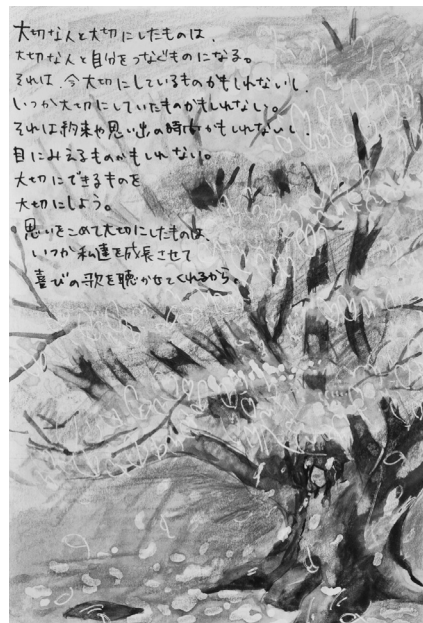 大切な人と大切にしたものは、
大切な人と自分をつなぐものになる。
それは、今大切にしているものかもしれないし、
いつか大切にしていたものかもしれない。
それは約束や思い出の時間かもしれないし、
目にみえるものかもしれない。
大切にできるものを
大切にしよう。
思いをこめて大切にしたものは、
いつか私達を成長させて
喜びの歌を聴かせてくれるから。